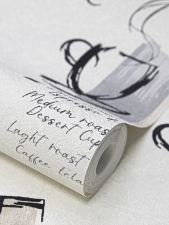 Medium roast
Dessert Cup
Laght roast
Caffee